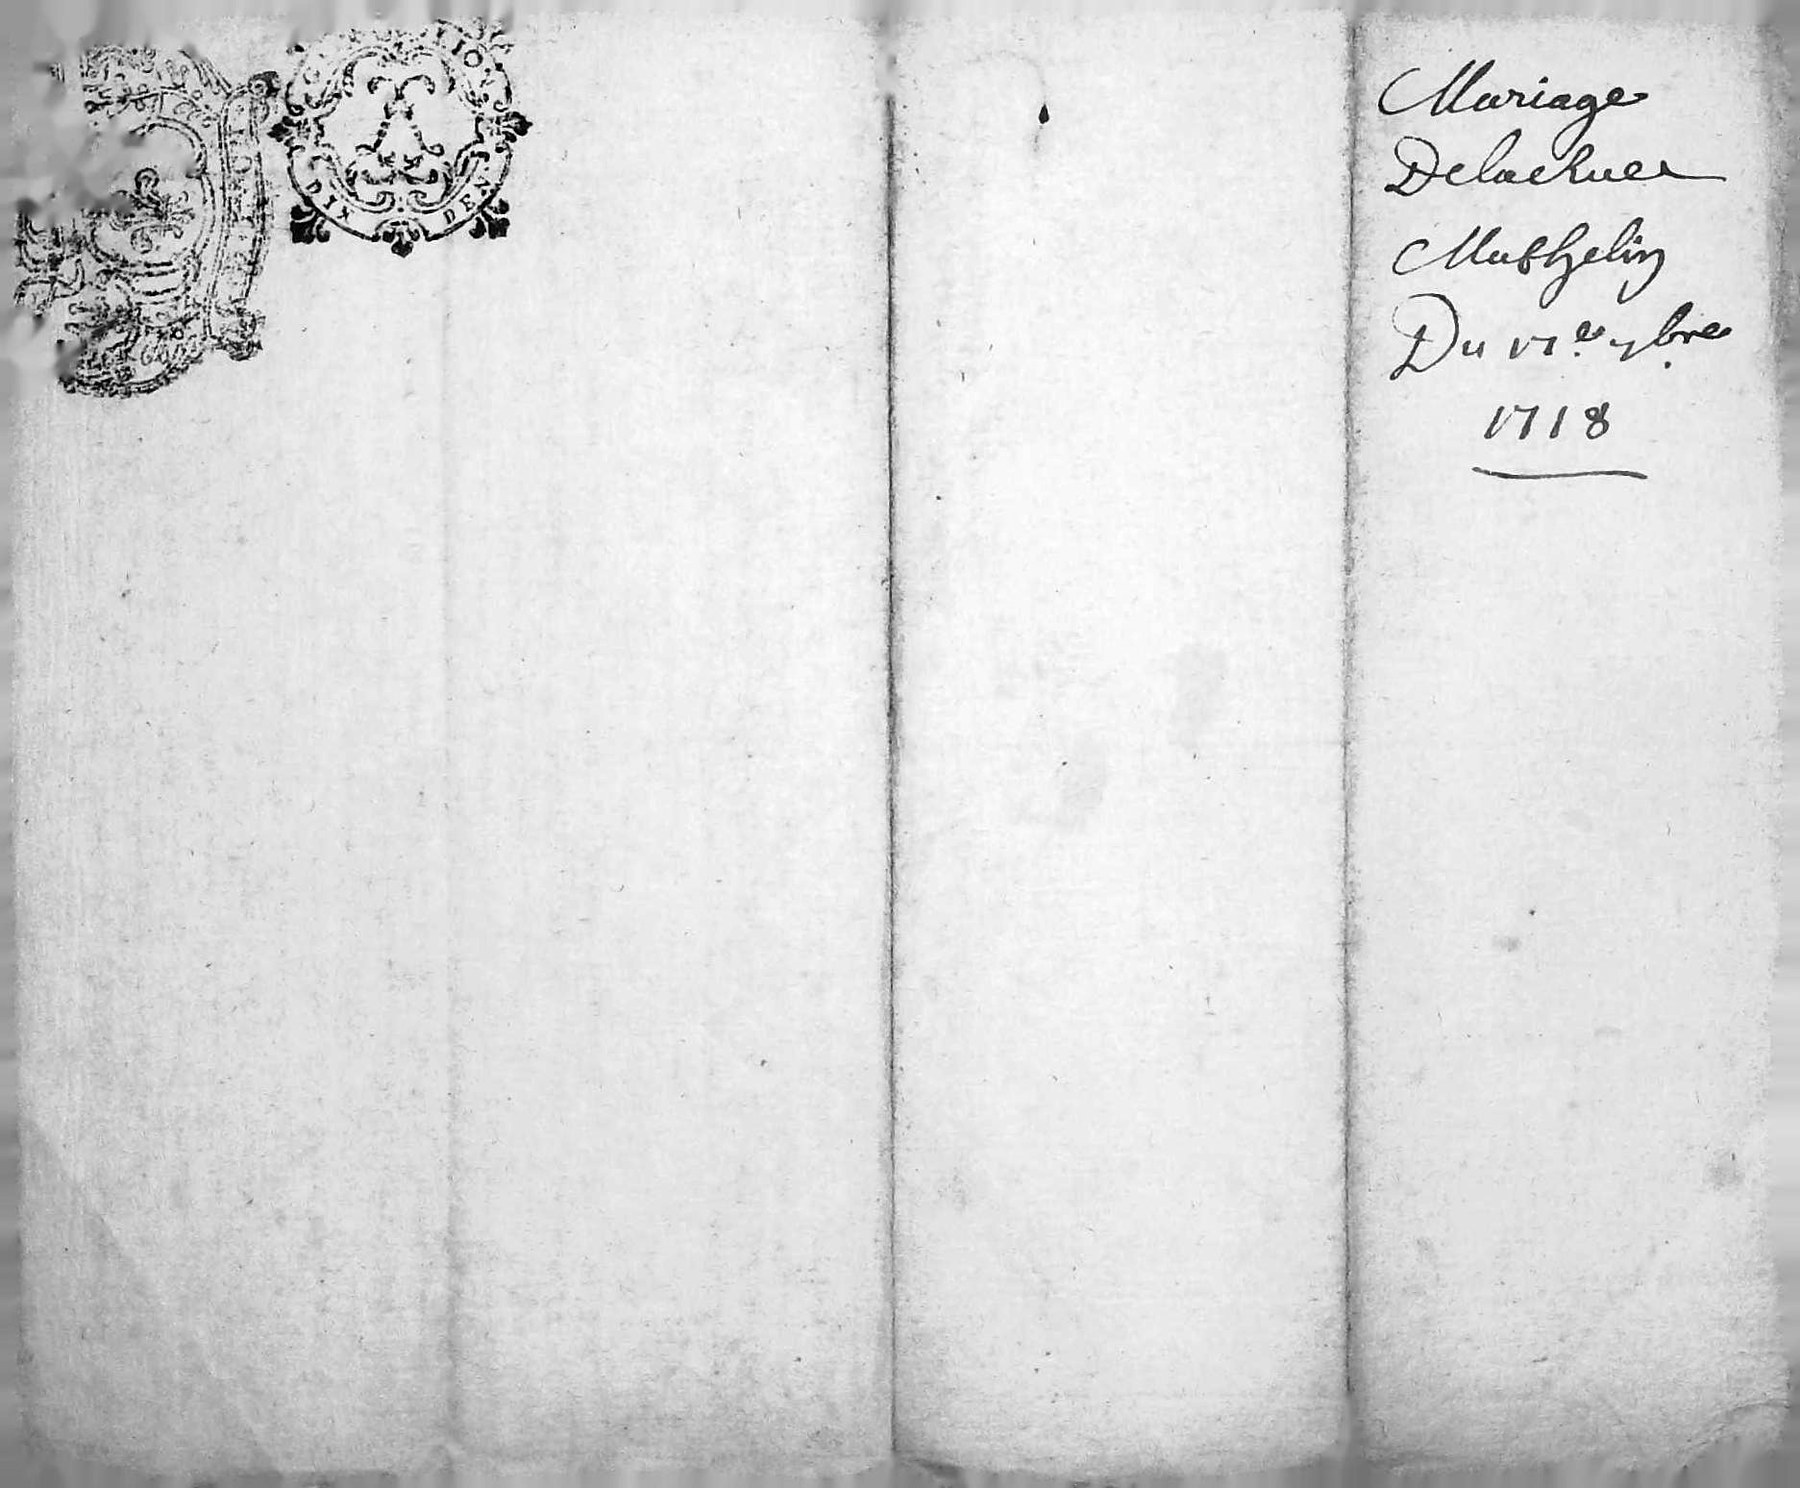 DIX DEN
Mariage
Delachuer
Mathelin
Du 17e 7bre
1718